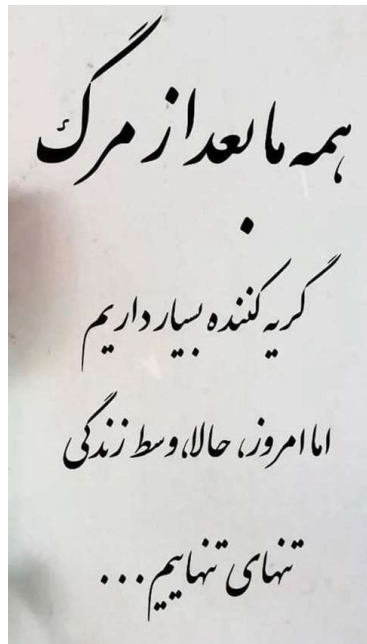 همه ما بعد از مرگ
گریه کننده بسیار داریم
اما امروز، حالا، وسط زندگی
تنهای تنهاییم...